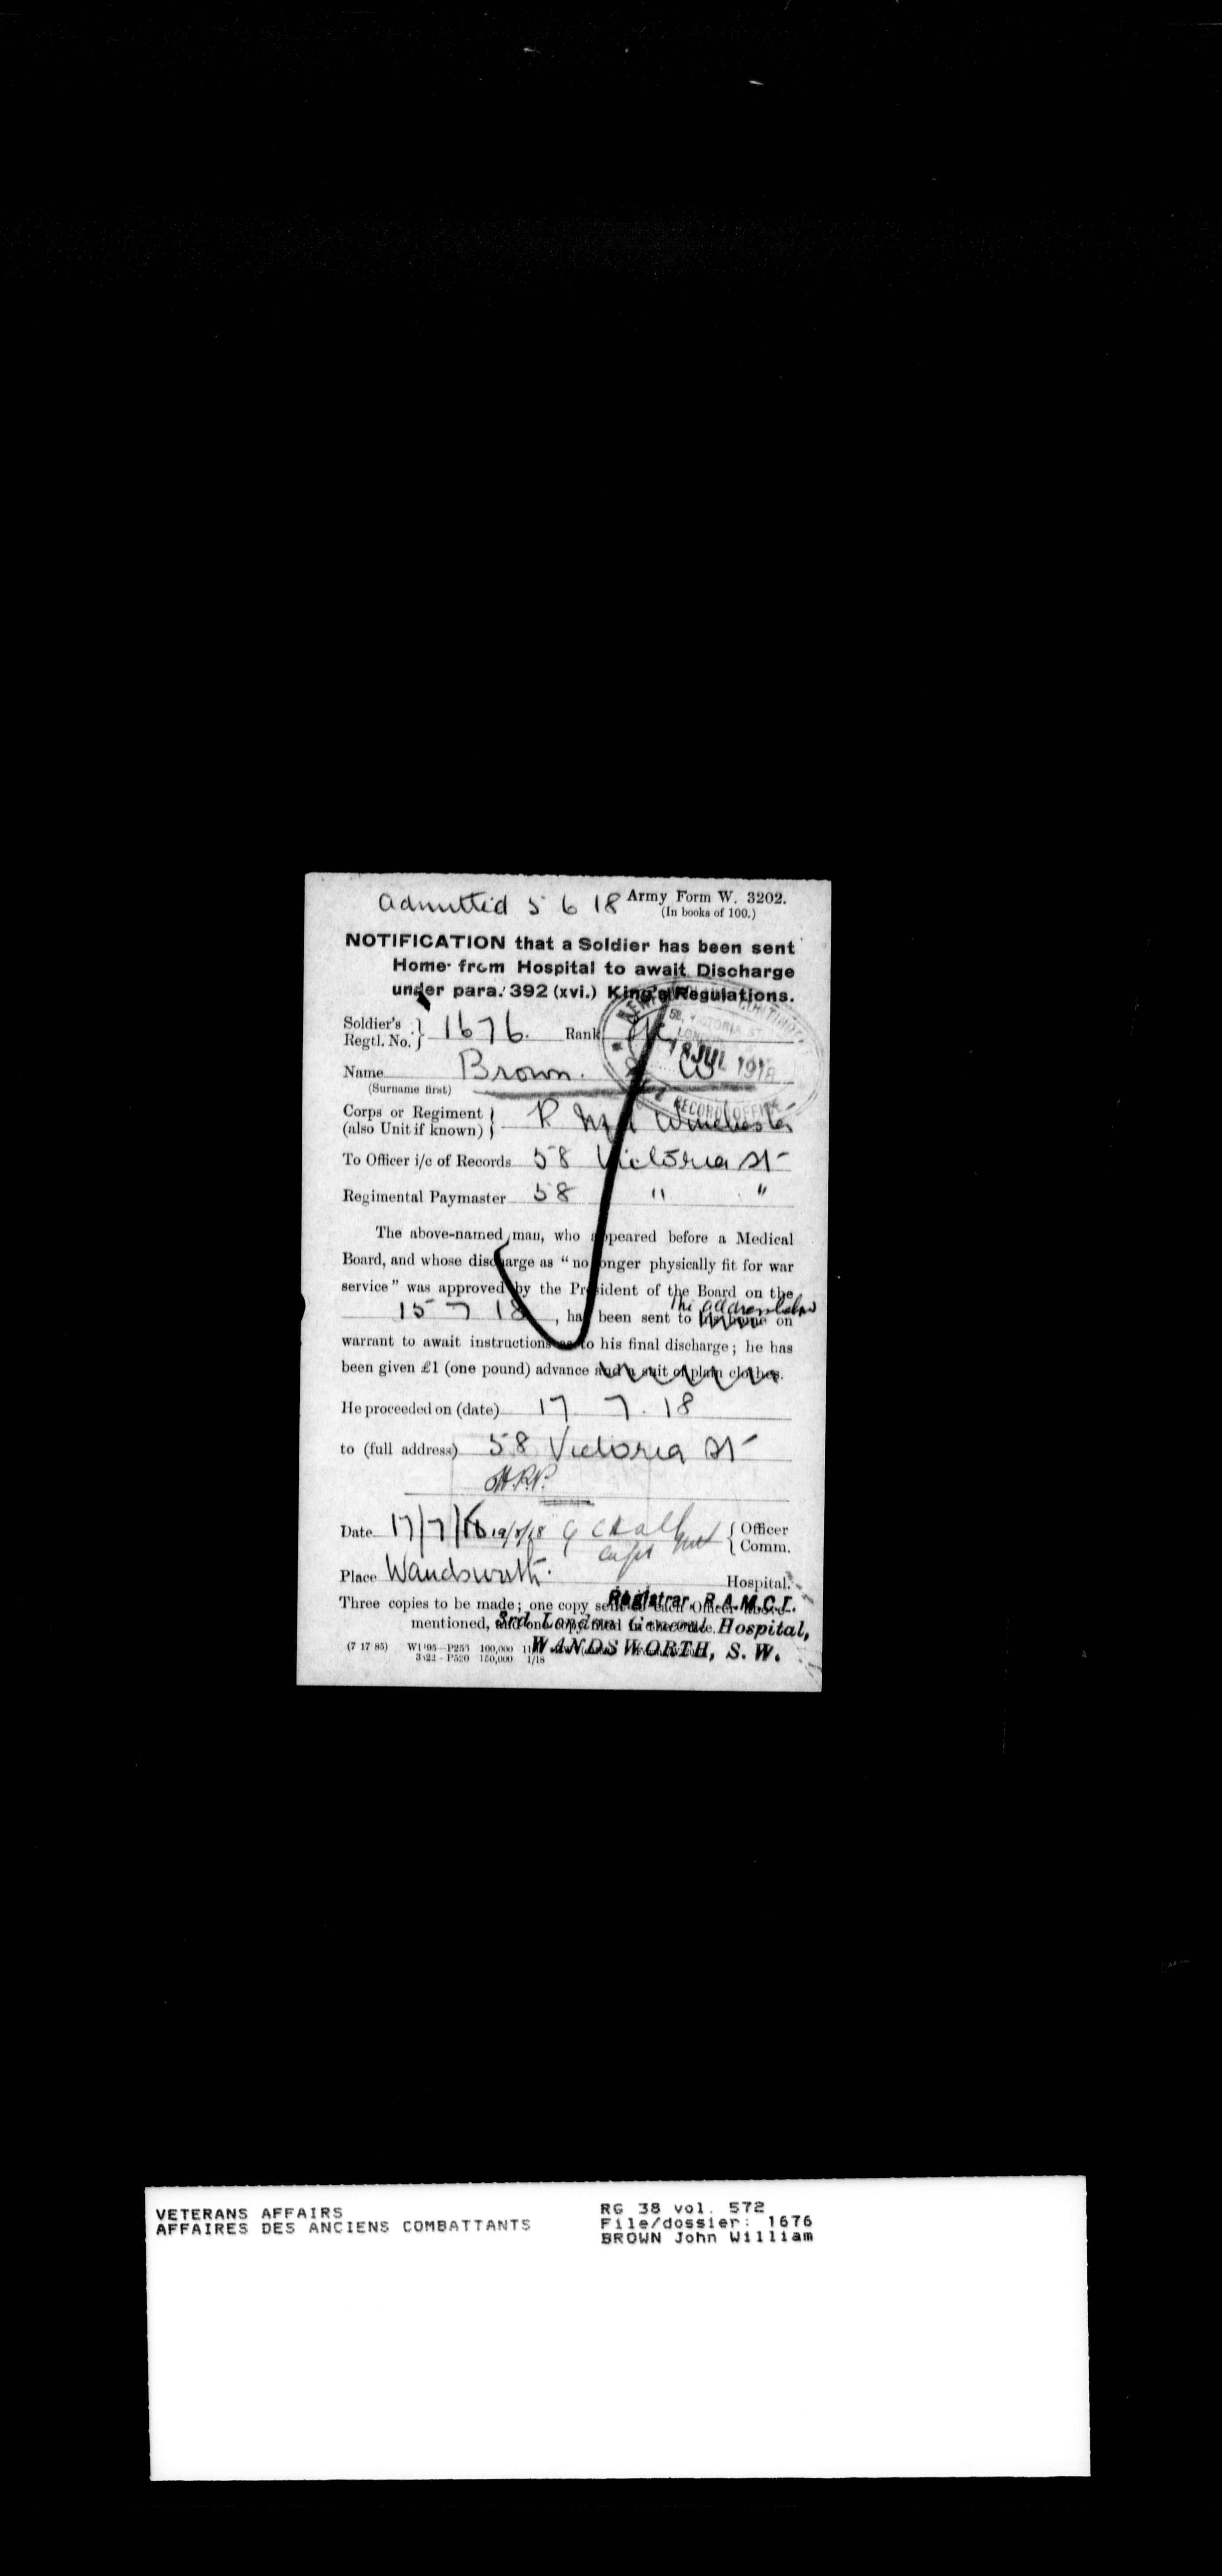 Admitted 5 6 18 Army Form W. 3202.
(In books of 100.)
NOTIFICATION that a Soldier has been sent
Home from Hospital to await Discharge
under para. 392 (xvi.) King's Regulations.
Soldier's Regtl. No. } 1676. Rank
Name Brown. W
(Surname first)
58, VICTORIA ST
LONDON
18 JUL 1918
RECORD OFFICE
Corps or Regiment (also Unit if known) } R Nfld Winchester
To Officer i/c of Records 58 Victoria St
Regimental Paymaster 58 " "
The above-named man, who appeared before a Medical
Board, and whose discharge as "no longer physically fit for war
service" was approved by the President of the Board on the
15 7 18, has been sent to the address below on
warrant to await instructions as to his final discharge; he has
been given £1 (one pound) advance and a suit of plain clothes.
He proceeded on (date) 17 7. 18
to (full address) 58 Victoria St
Date 17/7/18 19/7/18 Capt { Officer Comm.
Place Wandsworth. Hospital.
Three copies to be made; one copy sent to each Officer above-
mentioned, and one copy
Registrar, R.A.M.C.T.
3rd London General Hospital,
WANDSWORTH, S. W.
(7 17 85) 100,000
150,000 1/18
VETERANS AFFAIRS
AFFAIRES DES ANCIENS COMBATTANTS
RG 38 vol. 572
File/dossier: 1676
BROWN John William